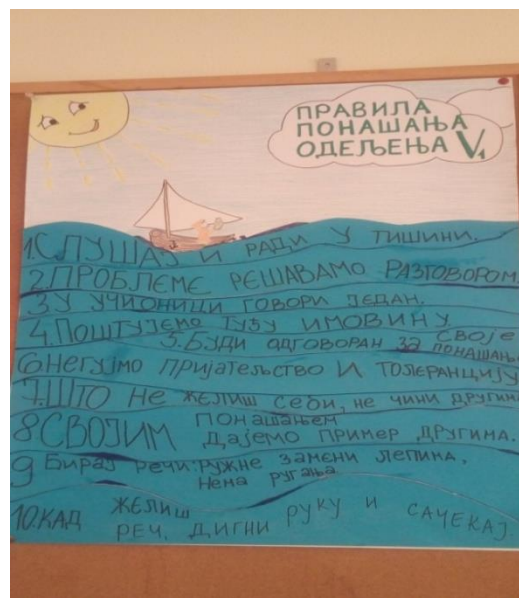 ПРАВИЛА
ПОНАШАЊА
ОДЕЉЕЊА V1
1. СЛУШАЈ И РАДИ У ТИШИНИ.
2. ПРОБЛЕМЕ РЕШАВАМО РАЗГОВОРОМ
3. У УЧИОНИЦИ ГОВОРИ ЈЕДАН.
4. ПОШТУЈЕМО ТУЂУ ИМОВИНУ
5. БУДИ ОДГОВОРАН ЗА СВОЈЕ
ПОНАШАЊЕ
6. НЕГУЈМО ПРИЈАТЕЉСТВО И ТОЛЕРАНЦИЈУ
7. ШТО НЕ ЖЕЛИШ СЕБИ, НЕ ЧИНИ ДРУГИМА
8 СВОЈИМ ПОНАШАЊЕМ
ДАЈЕМО ПРИМЕР ДРУГИМА.
9 БИРАЈ РЕЧИ: РУЖНЕ ЗАМЕНИ ЛЕПИМА.
НЕМА РУГАЊА
10. КАД ЖЕЛИШ
РЕЧ, ДИГНИ РУКУ И САЧЕКАЈ.